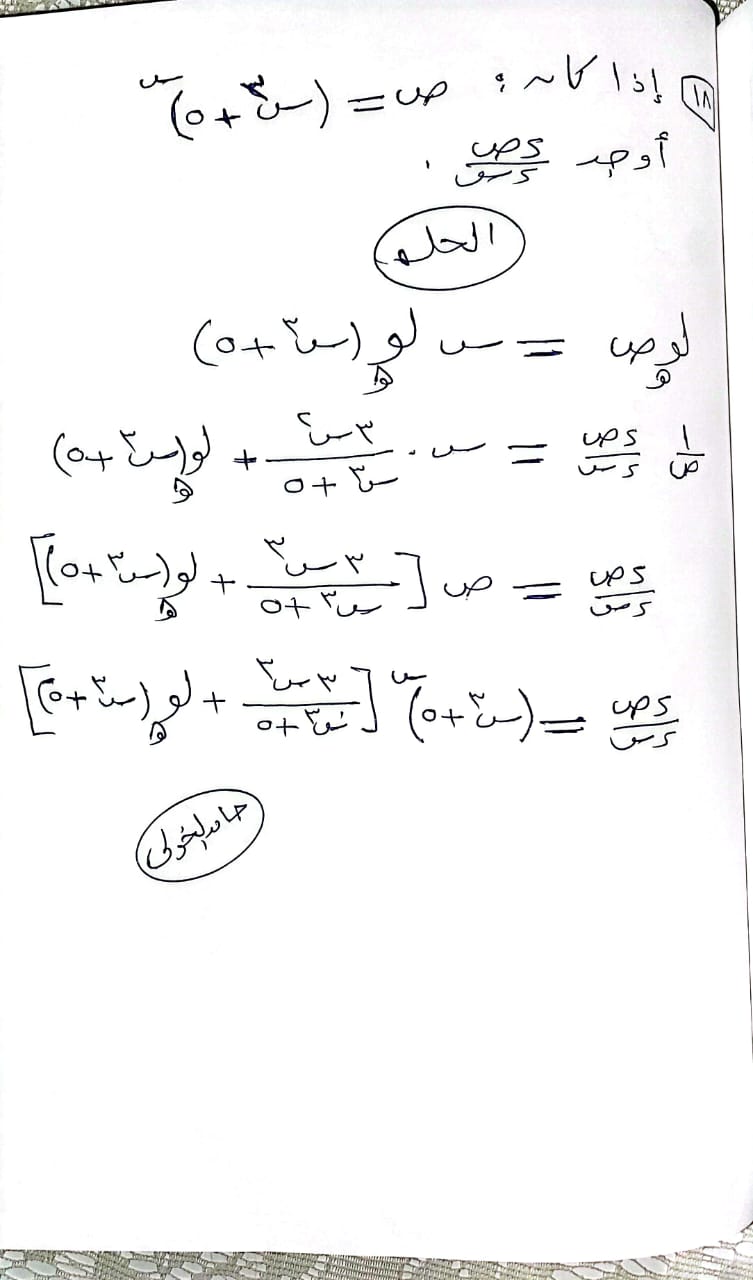 ١٨ إذا كان: ص = (س^٣ + ٥)^س
أوجد ءص/ءس .
الحل
لو_هـ ص = س لو_هـ (س^٣ + ٥)
١/ص ءص/ءس = س . ٣س^٢/(س^٣ + ٥) + لو_هـ (س^٣ + ٥)
ءص/ءس = ص [٣س^٣/(س^٣ + ٥) + لو_هـ (س^٣ + ٥)]
ءص/ءس = (س^٣ + ٥)^س [٣س^٣/(س^٣ + ٥) + لو_هـ (س^٣ + ٥)]